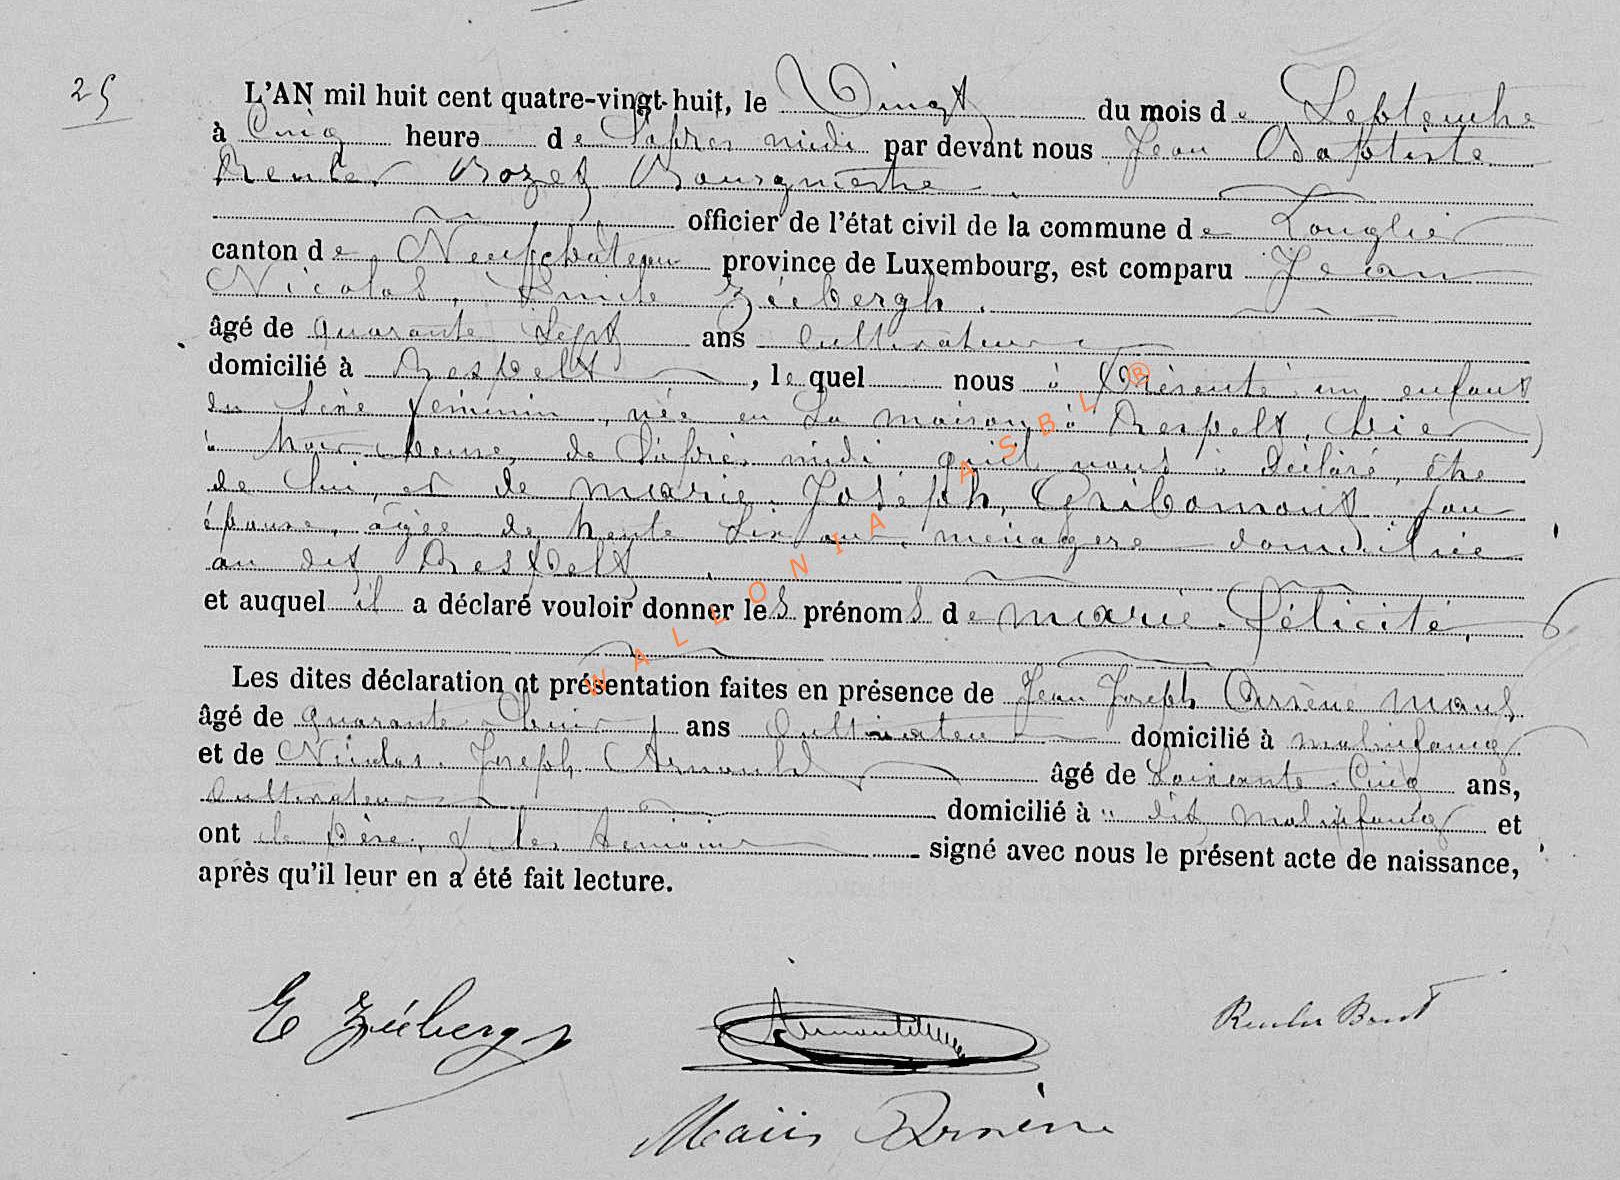 25
L'AN mil huit cent quatre-vingt-huit, le Vingt du mois de Septembre
à Cinq heure de l'après midi par devant nous Jean Baptiste
Renler Bozet Bourgmestre
officier de l'état civil de la commune de Longlier
canton de Neufchâteau province de Luxembourg, est comparu Jean
Nicolas, Emile Zéebergh.
âgé de quarante sept ans Cultivateur
domicilié à Respelt, le quel nous à Présenté un enfant
du sexe féminin, née en sa maison à Respelt, hier
à trois heures de l'après midi qu'il nous à déclaré, être
de lui, et de marie Joséph, Gribomont son
épouse, âgée de trente six ans, ménagère domiciliée
au dit Respelt
et auquel il a déclaré vouloir donner les prénoms de marie Félicité,
Les dites déclaration et présentation faites en présence de Jean Joseph Arsène Maus
âgé de quarante huit ans Cultivateur domicilié à malinfaing
et de Nicolas Joseph Arnould âgé de Soixante Cinq ans,
Cultivateur domicilié à dit Malinfaing et
ont le père, & les témoins signé avec nous le présent acte de naissance,
après qu'il leur en a été fait lecture.
E Zéebergh
Arnould
Maus Arsène
WALLONIA ASBL ®